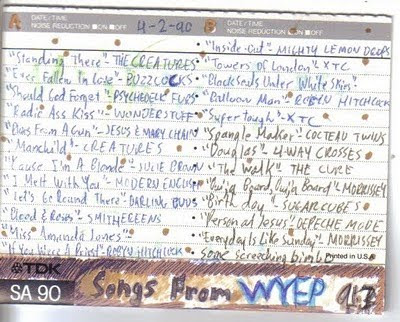 A DATE/TIME
NOISE REDUCTION ON OFF
4-2-90
B DATE/TIME
NOISE REDUCTION ON OFF
"Standing There"- THE CREATURES
"Ever Fallen in Love"- BUZZCOCKS
"Should God Forget"- PSYCHEDELIC FURS
"Radio Ass Kiss"- WONDERSTUFF
From A Gun"- JESUS & MARY CHAIN
"Manchild"- CREATURES
'Cause I'm A Blonde"- JULIE BROWN
"I Melt With You"- MODERN ENGLISH
"Let's Go Round There"- DARLING BUDS
"Blood & Roses"- SMITHEREENS
"Miss Amanda Jones"-
"If You Were A Priest"- ROBYN HITCHCOCK
"Inside Out"- MIGHTY LEMON DROPS
"Towers of London"- XTC
"Blackseeds Under White Skies"
"Balloon Man"- ROBYN HITCHCOCK
"Super Tough"- XTC
"Spangle Maker"- COCTEAU TWINS
"Douglas"- 4-WAY CROSSES
"The Walk"- THE CURE
"Ouija Board, Ouija Board"- MORRISSEY
"Birthday"- SUGARCUBES
"Personal Jesus"- DEPECHE MODE
"Everyday Is Like Sunday"- MORRISSEY
some screeching bimbo
Printed in U.S.A.
TDK
SA 90
Songs From WYEP 91.7